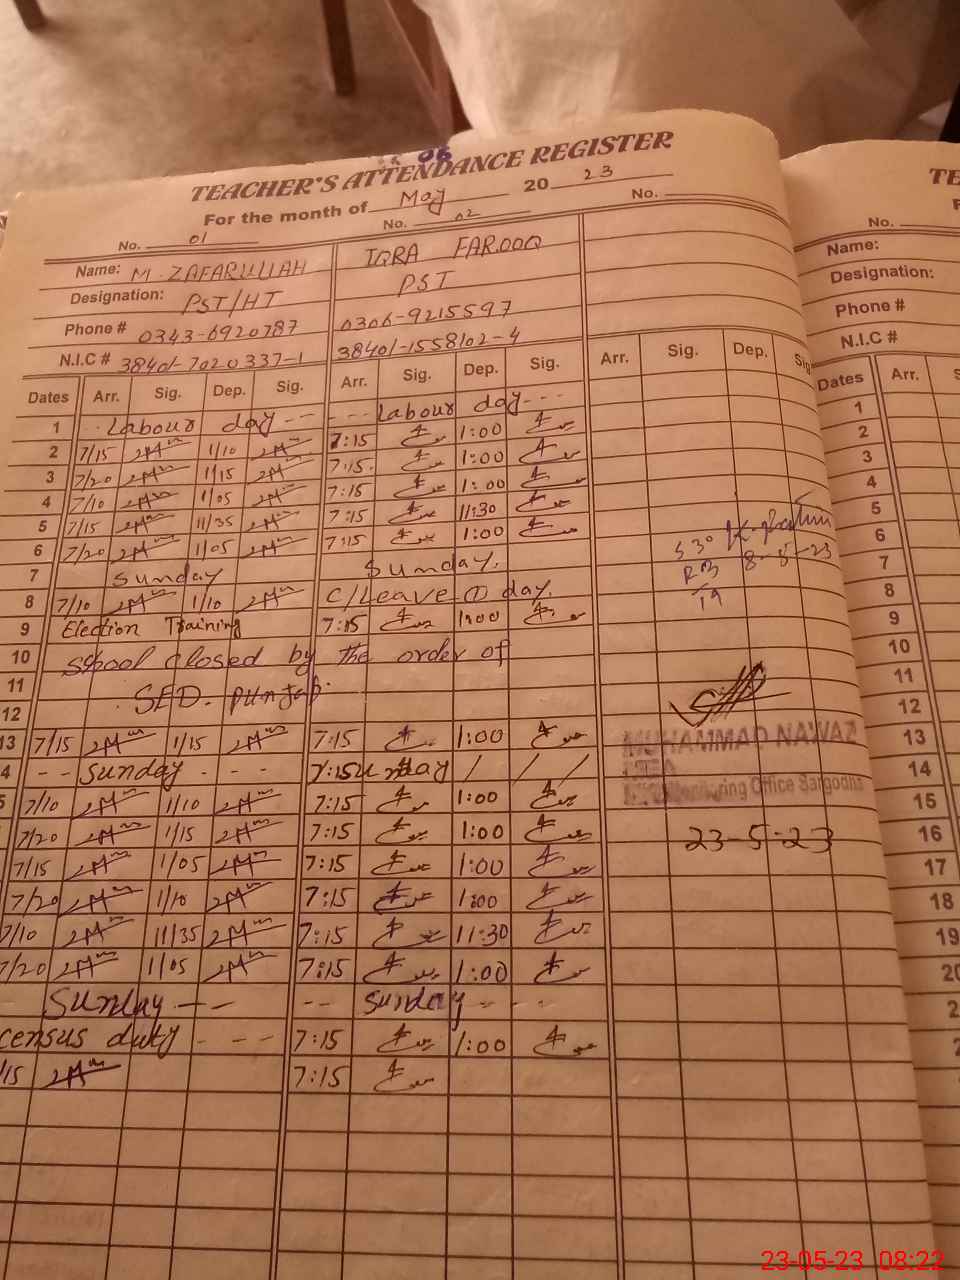 06
TEACHER'S ATTENDANCE REGISTER
For the month of May 2023
No. 01 No. 02 No.
Name: M. ZAFARULLAH IQRA FAROOQ
Designation: PST/HT PST
Phone # 0343-6920787 0306-9215597
N.I.C # 38401-7020337-1 38401-1558102-4
Dates Arr. Sig. Dep. Sig. Arr. Sig. Dep. Sig. Arr. Sig. Dep. Sig.
1 Labour day --- --- Labour day ---
2 7/15 1/10 7:15 1:00
3 7/20 1/15 7:15 1:00
4 7/10 1/05 7:15 1:00
5 7/15 11/35 7:15 11:30
6 7/20 1/05 7:15 1:00
7 Sunday Sunday.
8 7/10 1/10 C/Leave ① day.
9 Election Training 7:15 1:00
10 School closed by the order of
11 SED. Punjab.
12
13 7/15 1/15 7:15 1:00
4 -- Sunday --- 7:15
5 7/10 1/10 7:15 1:00
7/20 1/15 7:15 1:00
7/15 1/05 7:15 1:00
7/20 1/10 7:15 1:00
7/10 11/35 7:15 11:30
7/20 1/05 7:15 1:00
Sunday -- -- Sunday --
census duty --- 7:15 1:00
/15 7:15
8-5-23
MUHAMMAD NAWAZ
Monitoring Office Sargodha
23-5-23
TE
No.
Name:
Designation:
Phone #
N.I.C #
Dates Arr. S
1
2
3
4
5
6
7
8
9
10
11
12
13
14
15
16
17
18
19
20
2
2
23-05-23 08:22